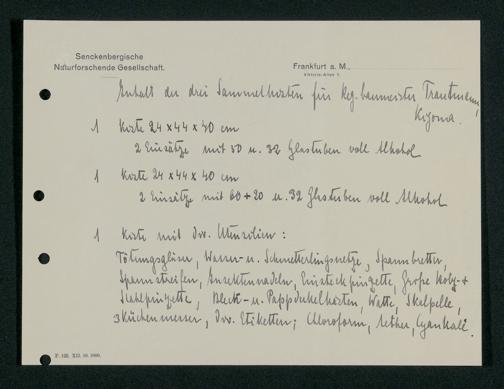 Senckenbergische
Naturforschende Gesellschaft.
Frankfurt a. M.,
Viktoria-Allee 7.
Inhalt der drei Sammelkästen für Reg.baumeister Trautmann,
Kigoma.
1 Kiste 24 x 44 x 40 cm
2 Einsätze mit 50 u. 32 Glastuben voll Alkohol
1 Kiste 24 x 44 x 40 cm
2 Einsätze mit 60 + 20 u. 32 Glastuben voll Alkohol
1 Kiste mit div. Utensilien:
Tötungsgläser, Wasser- u. Schmetterlingsnetze, Spannbretter,
Spannstreifen, Insektennadeln, Einsteckpinzette, Große Holz- +
Stahlpinzette, Blech- u. Pappdeckelkästen, Watte, Skalpelle,
3 Küchenmesser, Div. Etiketten; Chloroform, Aether, Cyankali.